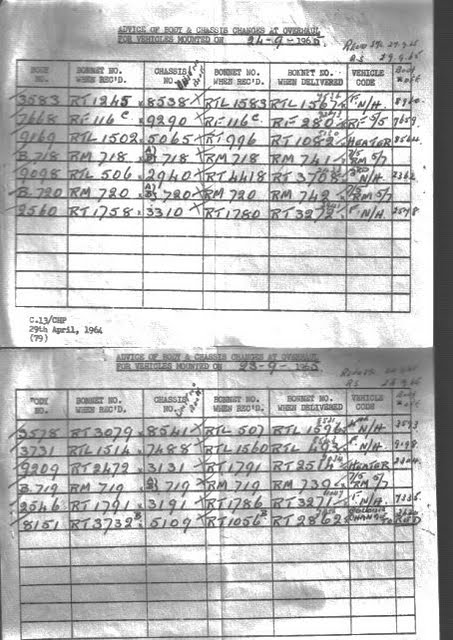 ADVICE OF BODY & CHASSIS CHANGES AT OVERHAUL
FOR VEHICLES MOUNTED ON 24-9-1965
29.9.65
BODY NO. BONNET NO. WHEN REC'D. CHASSIS NO. BONNET NO. WHEN REC'D. BONNET NO. WHEN DELIVERED VEHICLE CODE Body off
3583 RT 1245 8538 RTL 1583 RTL 1567 N/H.
7668 RF 116c 9290 RF 116c RF 280 5/5 7659
9169 RTL 1502 5065 RT 996 RT 1082 HEATER 8564
B.718 RM 718 718 RM 718 RM 741 7/5 RM 5/7
9098 RTL 506 2940 RT 4418 RT 3708 2362
B.720 RM 720 720 RM 720 RM 742 7/5 RM 5/7
2560 RT 1758 3310 RT 1780 RT 3272 N/H 2548
C.13/CHP
29th April, 1964
(79)
ADVICE OF BODY & CHASSIS CHANGES AT OVERHAUL
FOR VEHICLES MOUNTED ON 23-9-1965
BODY NO. BONNET NO. WHEN REC'D. CHASSIS NO. BONNET NO. WHEN REC'D. BONNET NO. WHEN DELIVERED VEHICLE CODE Body off
3578 RT 3079 8541 RTL 507 RTL 1596 N/H 3593
3731 RTL 1514 7488 RTL 1560 RTL 493 N/H. 9098
9209 RT 2472 3131 RT 1791 RT 2514 HEATER 2304
B.719 RM 719 719 RM 719 RM 739 7/5 RM 5/7
2546 RT 1791 3191 RT 1786 RT 3271 N/H. 7335
8151 RT 3732 5109 RT 1056 RT 2862 CHANGE